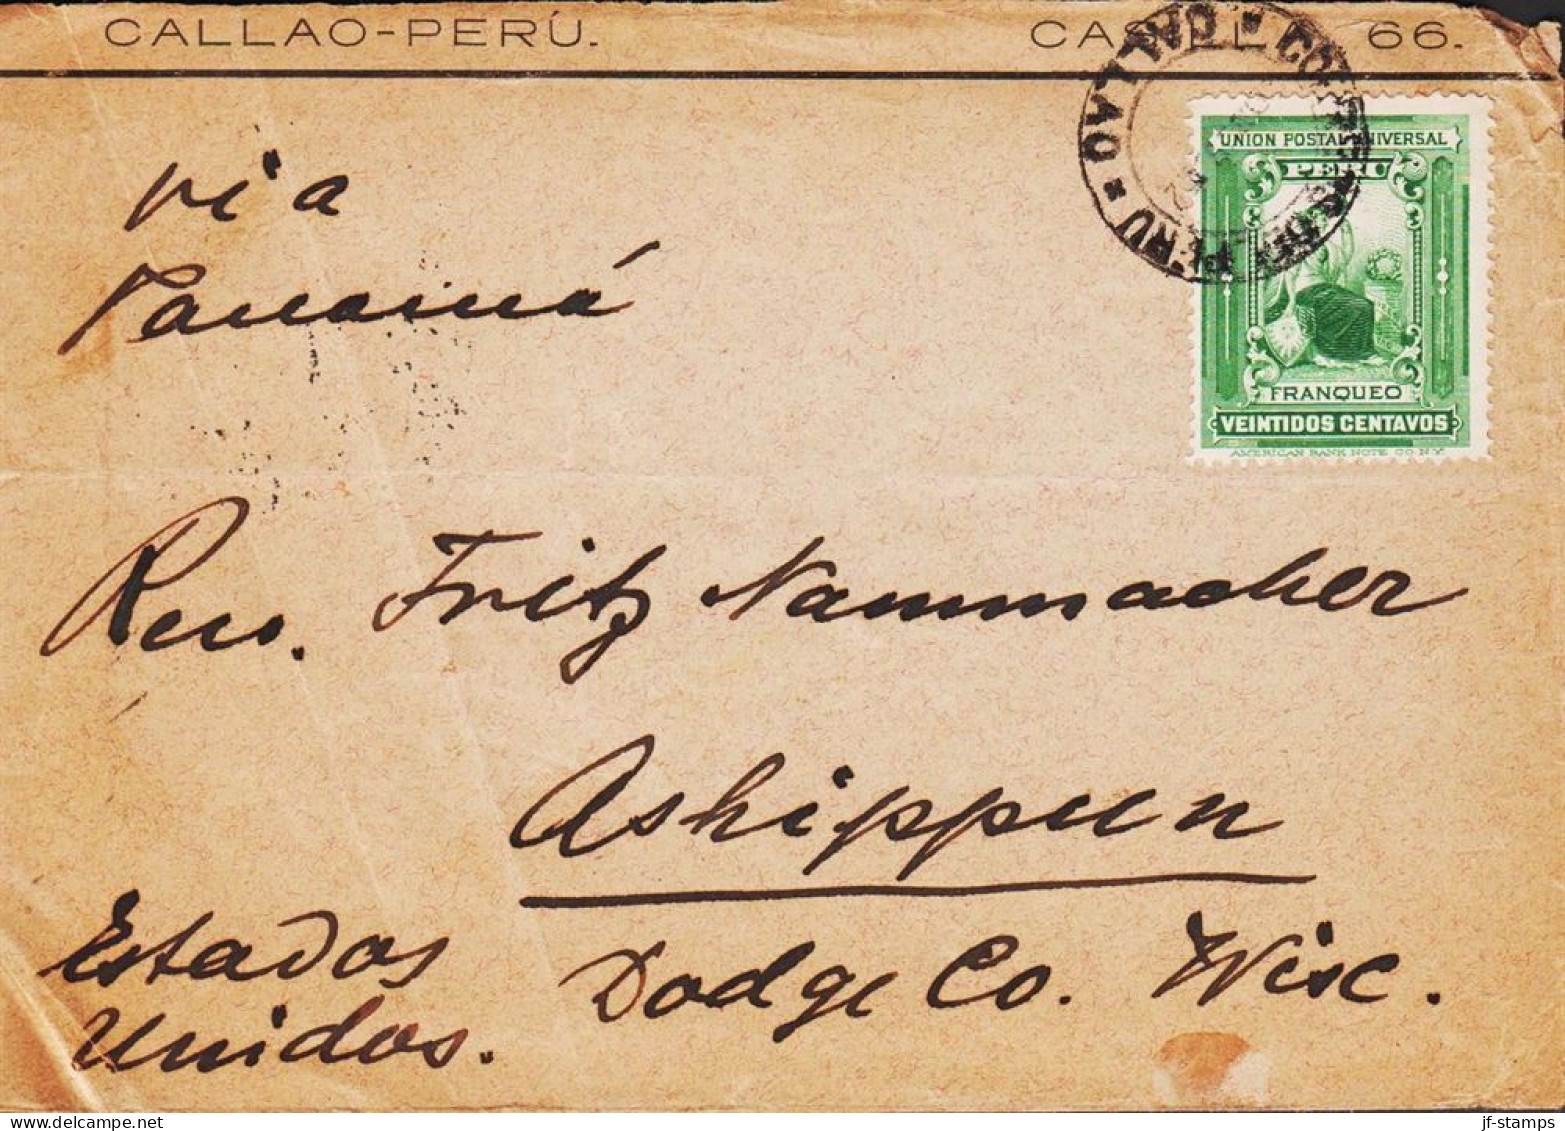 CALLAO-PERÚ. CASILLA 66.
CALLAO
PERU
UNION POSTAL UNIVERSAL
PERU
FRANQUEO
VEINTIDOS CENTAVOS
AMERICAN BANK NOTE CO. N.Y.
via
Panamá
Rev. Fritz Nammacher
Ashippun
Dodge Co. Wisc.
Estados
Unidos.
jf-stamps